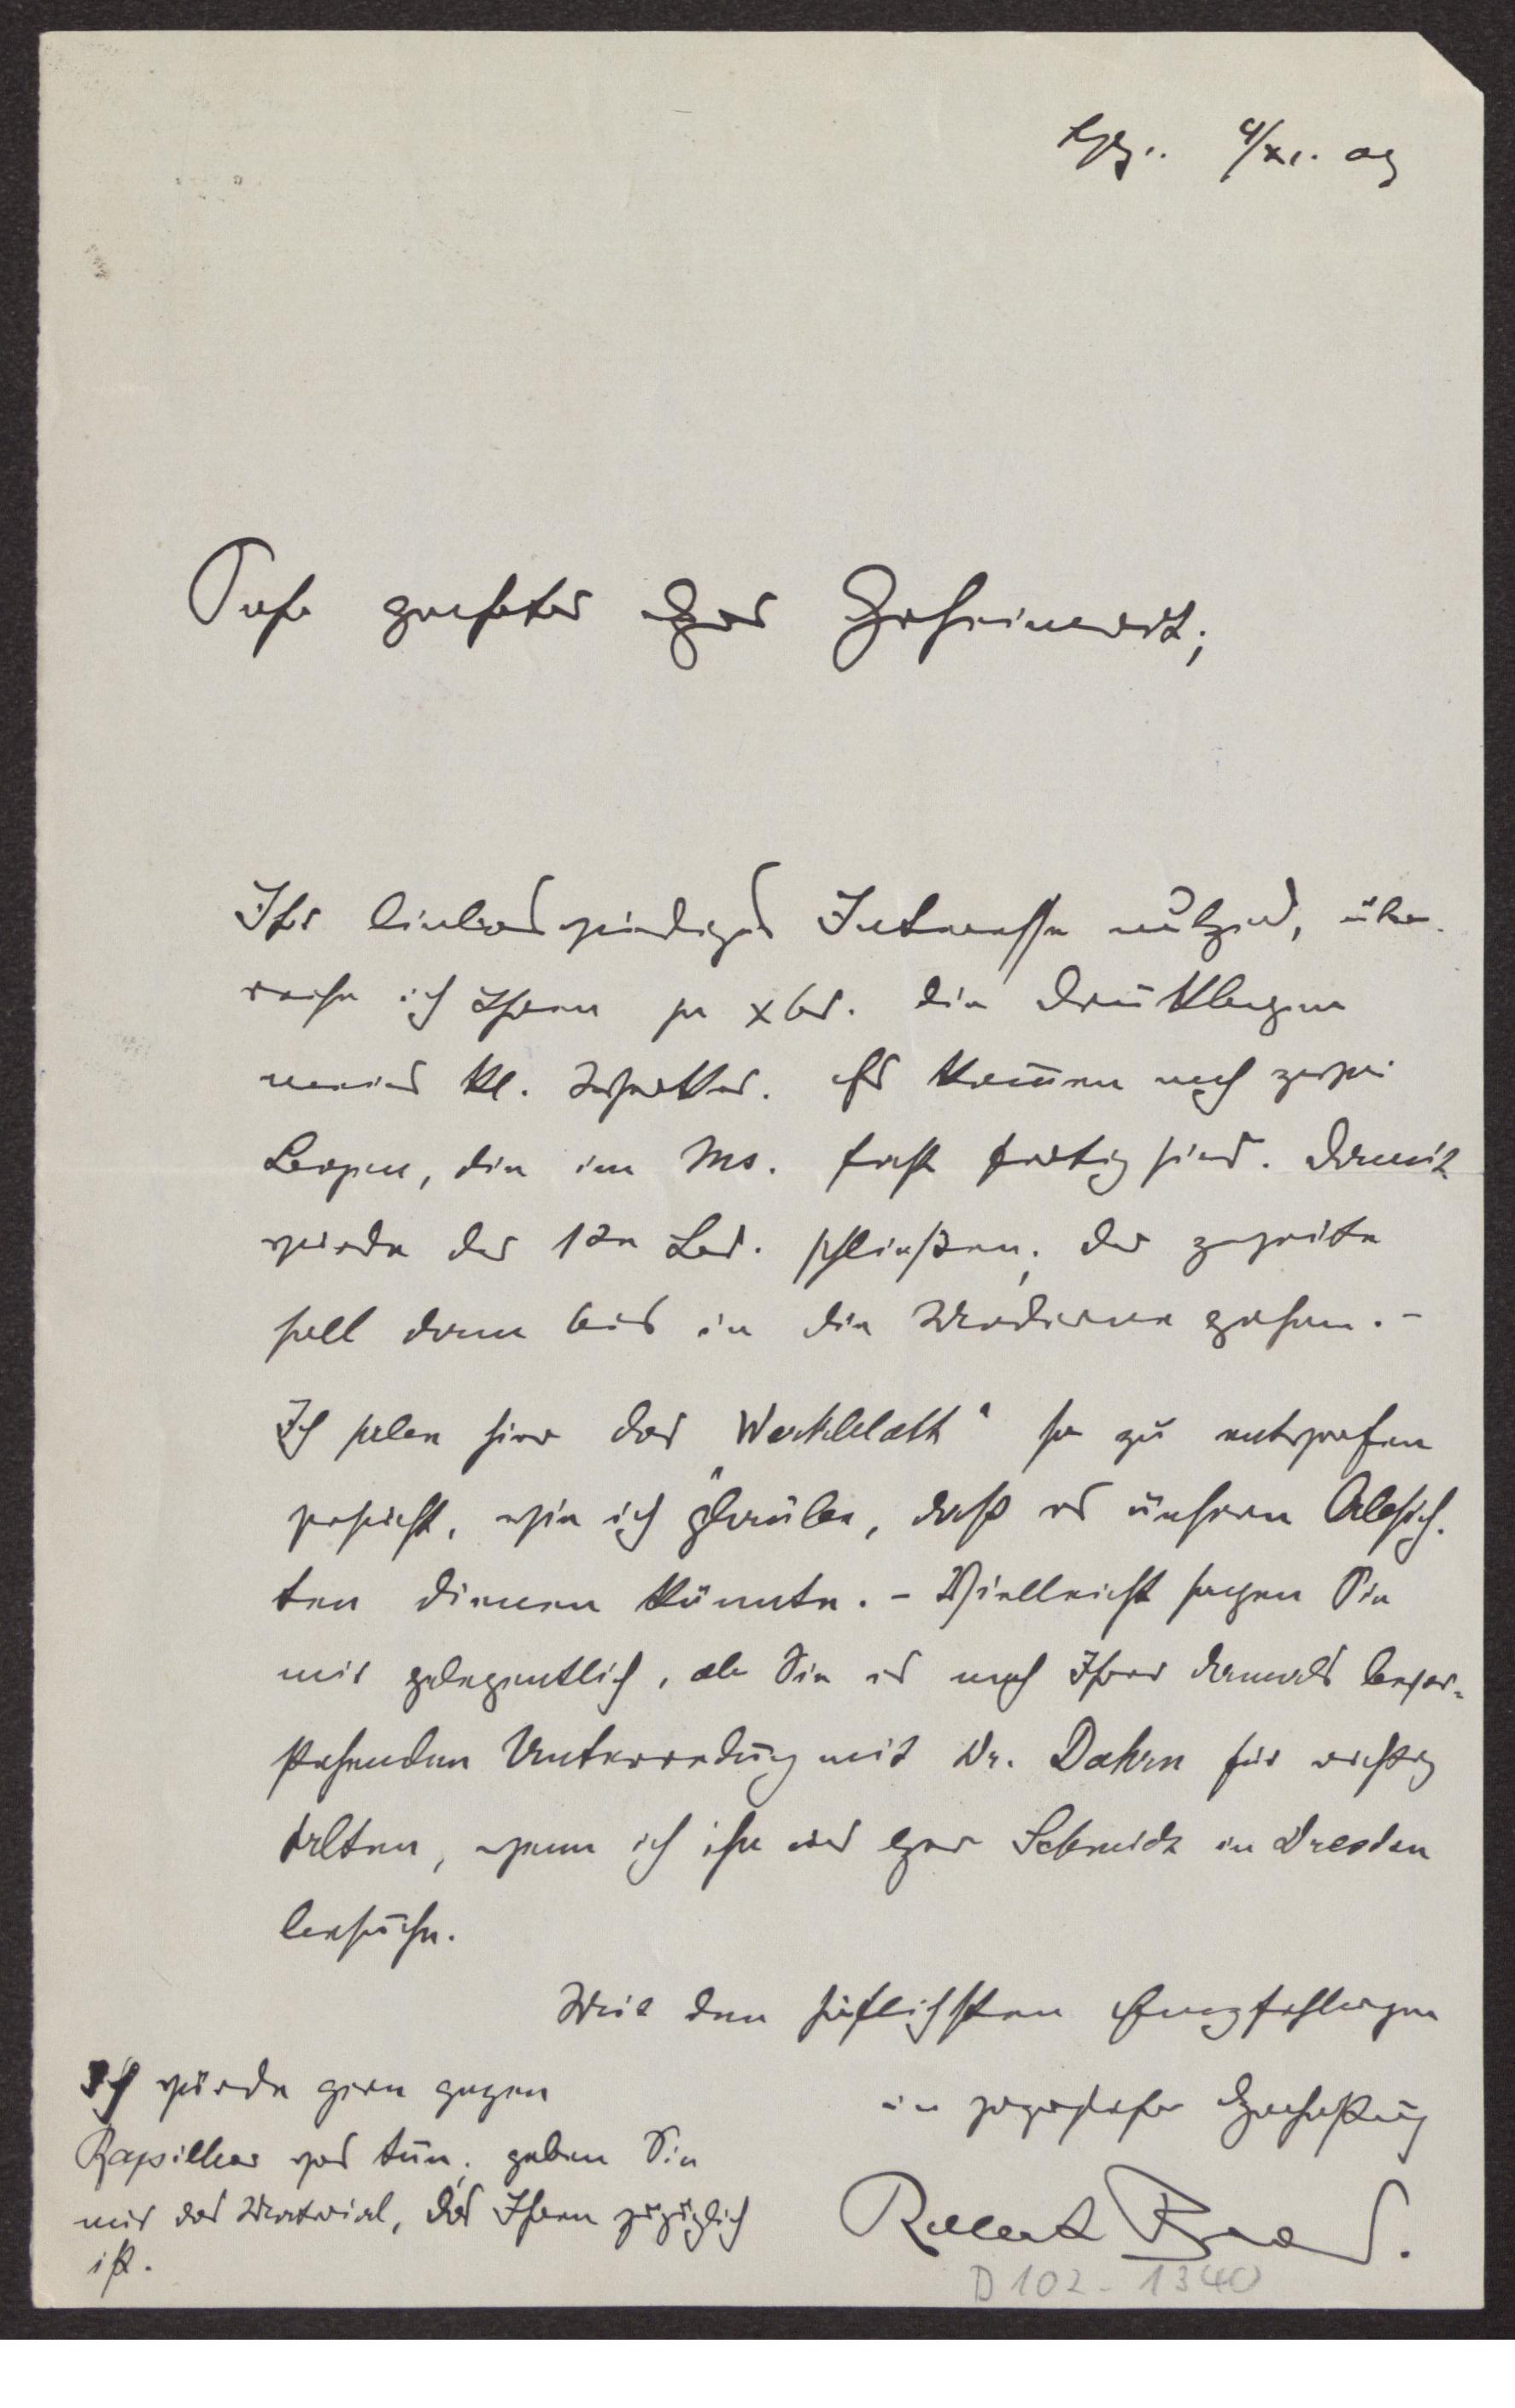 Lpzg. 4/XI. 09
Sehr geehrter Herr Geheimrat;
Ihr liebenswürdiges Interesse nutzend, über-
reiche ich Ihnen pr Xbd. die Druckbogen
meines kl. Werkes. Es kommen noch zwei
Bogen, die im Ms. fast fertig sind. Damit
würde der 1te Bd. schließen; der zweite
soll dann bis in die Moderne gehen. –
Ich habe hier das „Werkblatt“ so zu entwerfen
gesucht, wie ich glaube, daß es unseren Absich-
ten dienen könnte. – Vielleicht sagen Sie
mir gelegentlich, ob Sie es nach Ihrer damals bevor-
stehenden Unterredung mit Dr. Dohrn für richtig
halten, wenn ich ihn und Herr Schmidt in Dresden
besuche.
Mit den höflichsten Empfehlungen
in Hochachtung
Robert
Ich würde gern gegen
was tun; geben Sie
mir das Material, das Ihnen zugänglich
ist.
D 102 - 1340